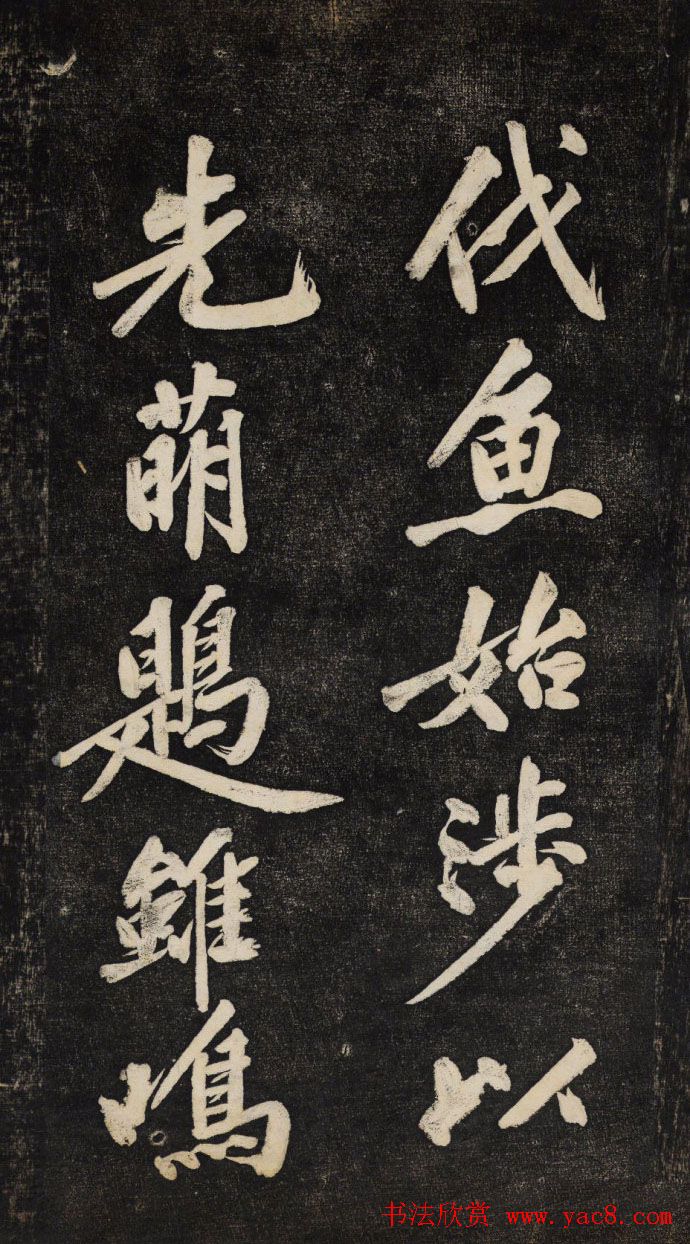 伐魚始涉以
先萌鶗雖鳴
书法欣赏 www.yac8.com